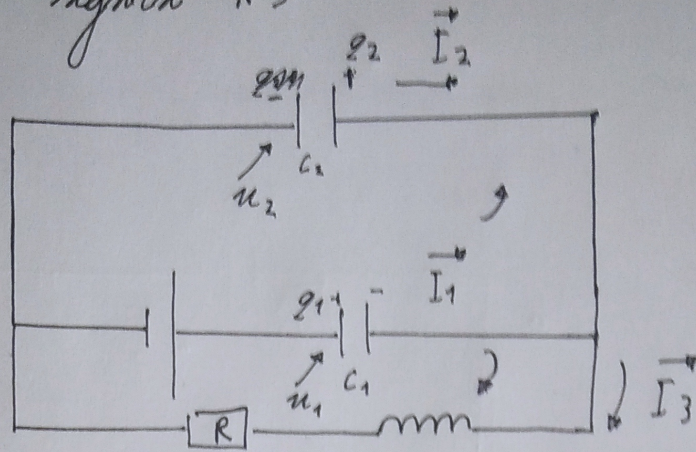 q₂ I₂
+
C₂
u₂
I₁
q₁ + -
u₁ C₁
I₃
R